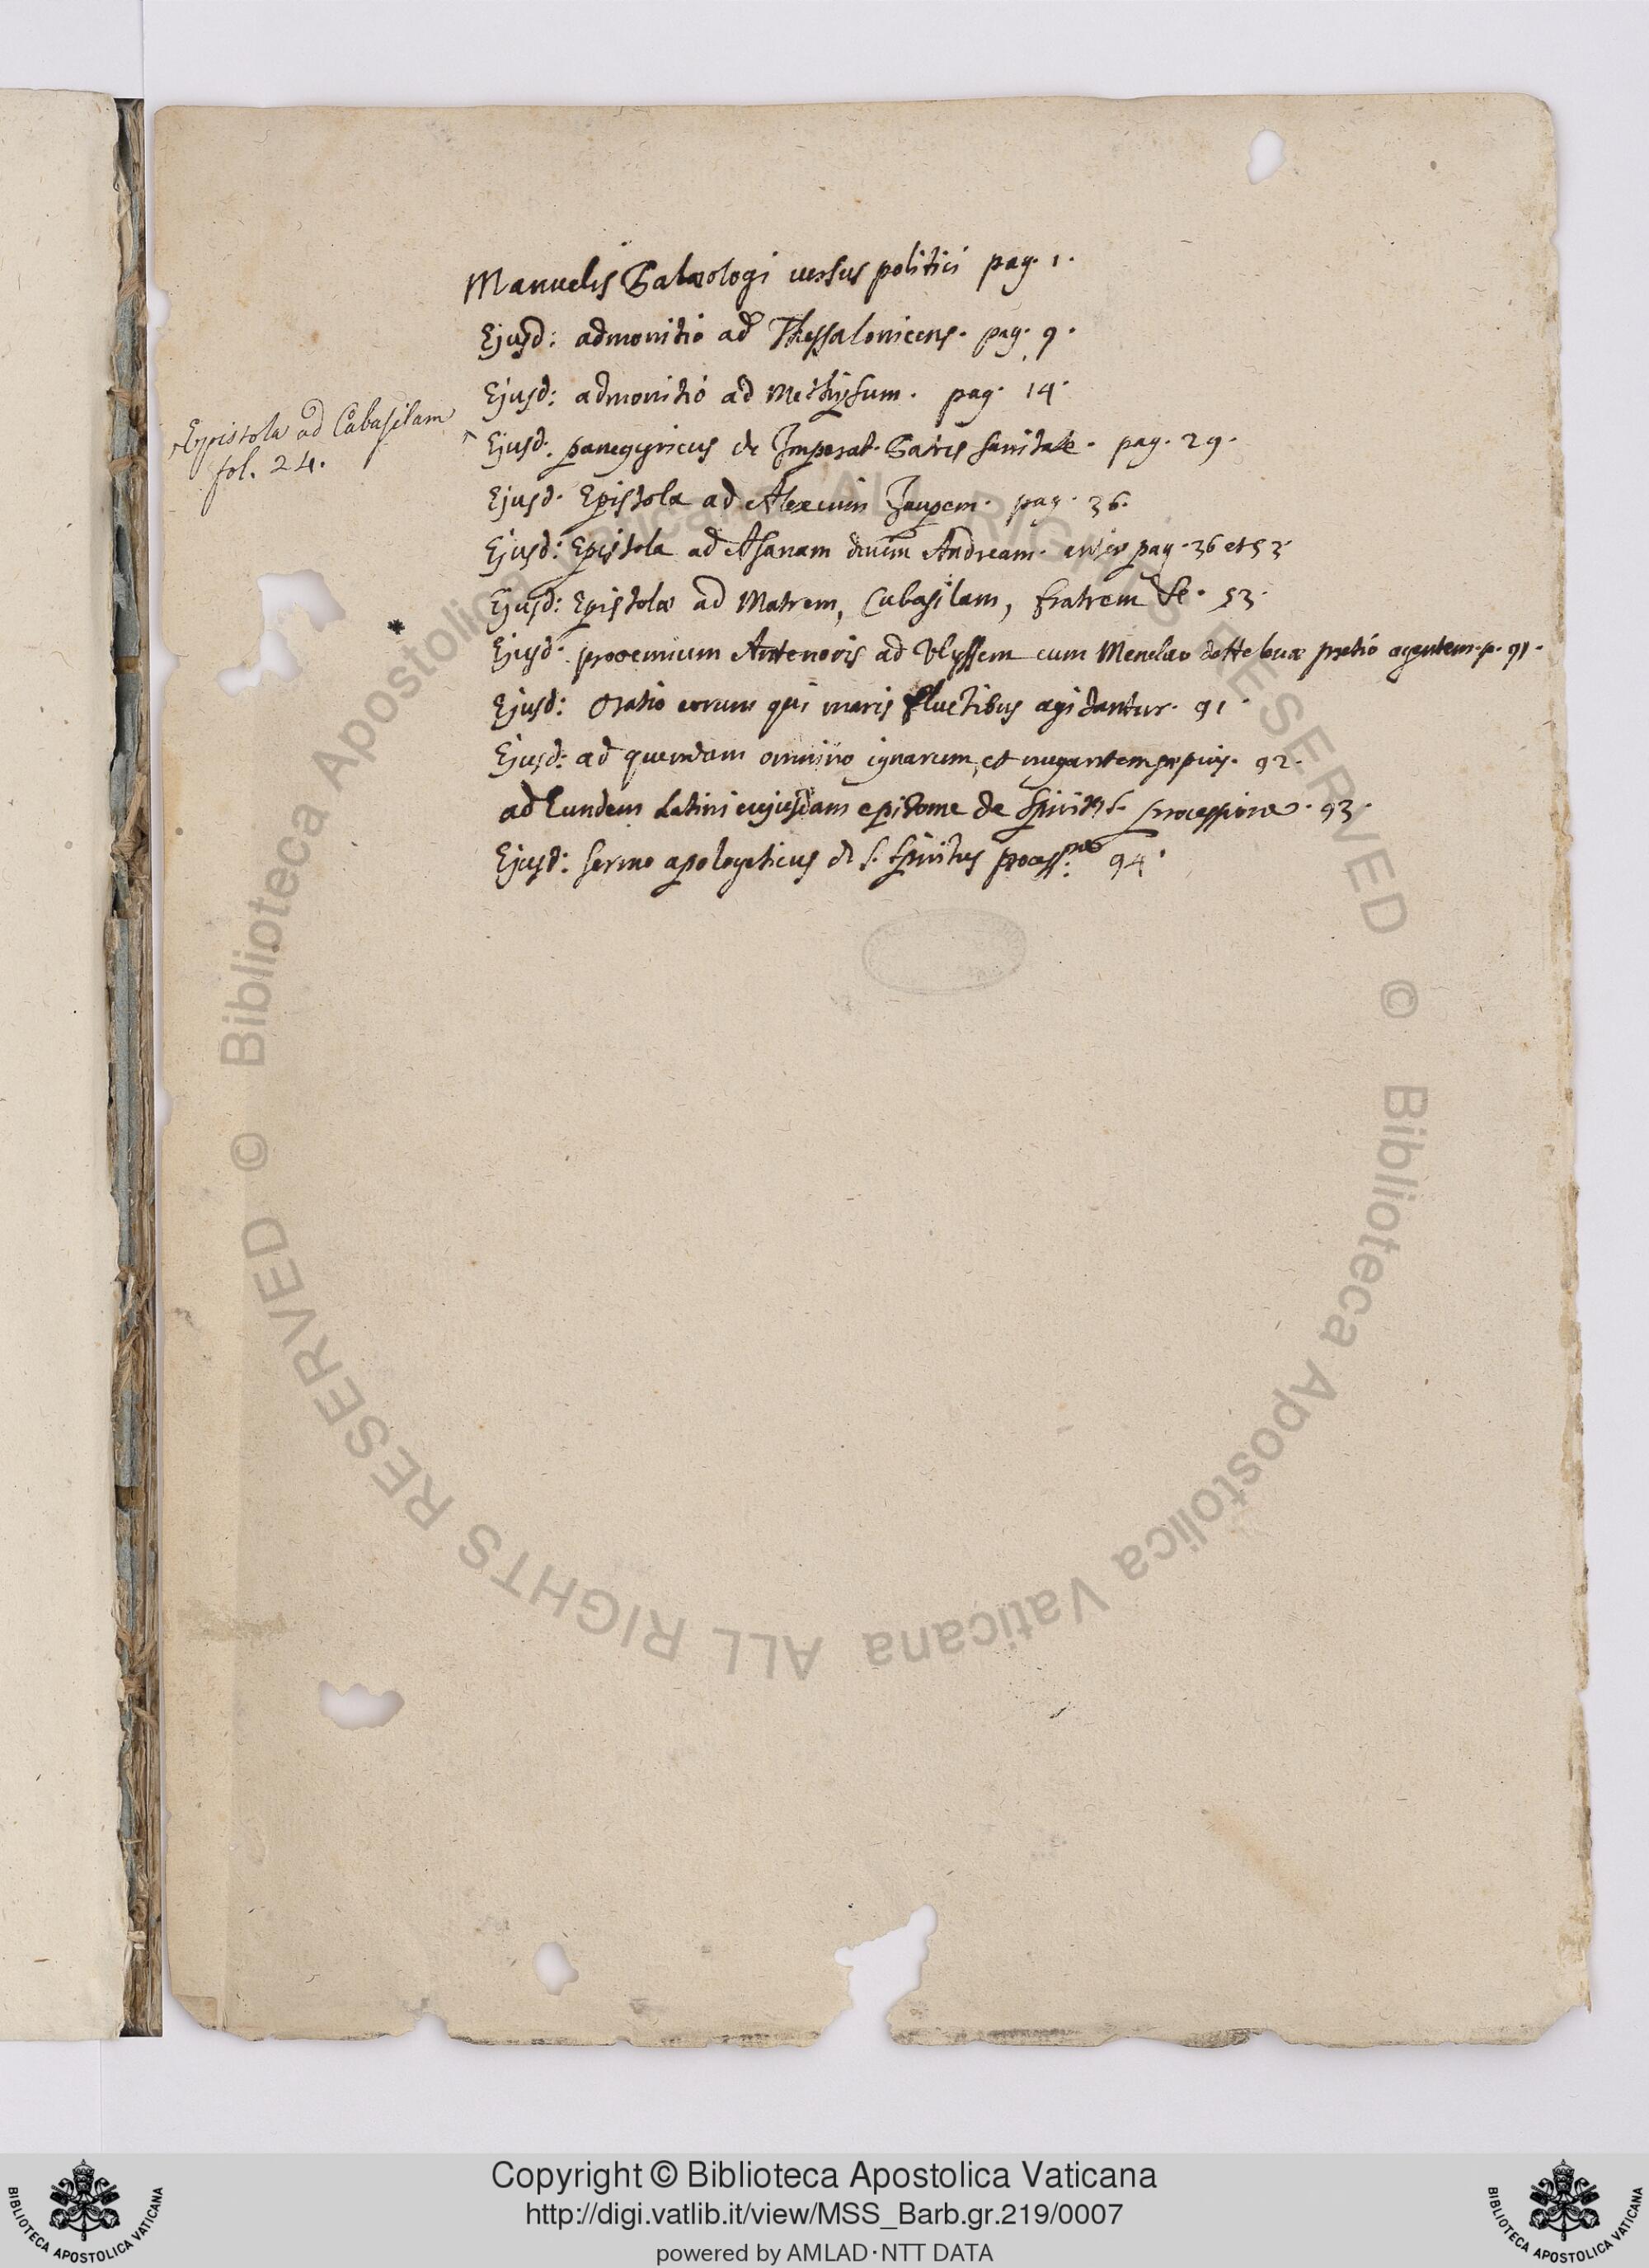 Manuelis Palæologi versus politici pag. 1.
Ejusd: admonitio ad Thessalonicens. pag. 9.
Ejusd: admonitio ad Methysum. pag. 14.
Epistola ad Cabasilam
fol. 24.
Ejusd. panegyricus de Imperat. Patris sanitate. pag. 29.
Ejusd. Epistola ad Alexium Jaupem. pag. 36.
Ejusd: Epistola ad Asanam Andream. pag. 36 et 53.
* Ejusd: Epistolæ ad Matrem, Cabasilam, fratrem &c. 53.
Ejusd. prooemium Antenoris ad Ulyssem cum Menelao agentem. p. 91.
Ejusd: Oratio eorum qui maris fluctibus agitantur. 91.
Ejusd: ad quemdam omnino ignarum, et nugantem 92.
ad Eundem Latini cujusdam epitome de Spirit. S. processione. 93.
Ejusd: sermo apologeticus de S. Spiritus process.ne 94.
© Biblioteca Apostolica Vaticana ALL RIGHTS RESERVED © Biblioteca Apostolica Vaticana ALL RIGHTS RESERVED
BIBLIOTECA APOSTOLICA VATICANA
Copyright © Biblioteca Apostolica Vaticana
http://digi.vatlib.it/view/MSS_Barb.gr.219/0007
powered by AMLAD·NTT DATA
BIBLIOTECA APOSTOLICA VATICANA